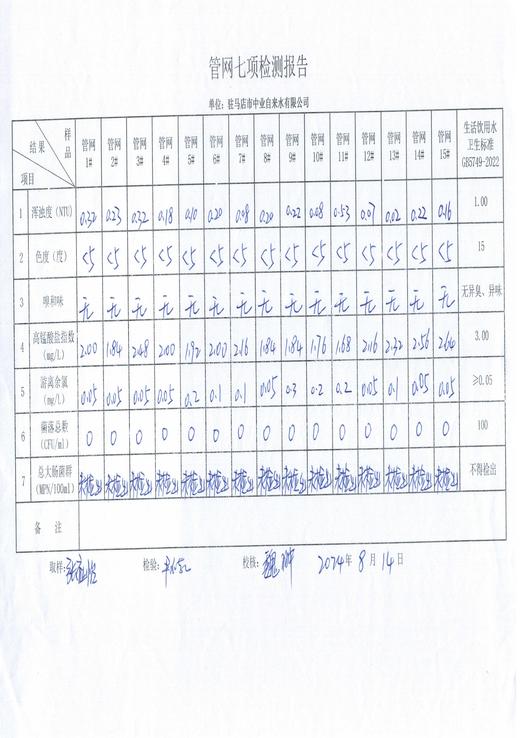 管网七项检测报告
单位：驻马店市中业自来水有限公司
结果 样品 项目 管网1# 管网2# 管网3# 管网4# 管网5# 管网6# 管网7# 管网8# 管网9# 管网10# 管网11# 管网12# 管网13# 管网14# 管网15# 生活饮用水卫生标准GB5749-2022
1 浑浊度（NTU） 0.32 0.23 0.32 0.18 0.10 0.20 0.08 0.20 0.22 0.08 0.53 0.07 0.02 0.22 0.16 1.00
2 色度（度） <5 <5 <5 <5 <5 <5 <5 <5 <5 <5 <5 <5 <5 <5 <5 15
3 嗅和味 无 无 无 无 无 无 无 无 无 无 无 无 无 无 无 无异臭、异味
4 高锰酸盐指数（mg/L） 2.00 1.84 2.48 2.00 1.92 2.00 2.16 1.84 1.84 1.76 1.68 2.16 2.32 2.56 2.64 3.00
5 游离余氯（mg/L） 0.05 0.05 0.05 0.05 0.2 0.1 0.1 0.05 0.3 0.2 0.2 0.05 0.1 0.05 0.05 ≥0.05
6 菌落总数（CFU/ml） 0 0 0 0 0 0 0 0 0 0 0 0 0 0 0 100
7 总大肠菌群（MPN/100ml） 未检出 未检出 未检出 未检出 未检出 未检出 未检出 未检出 未检出 未检出 未检出 未检出 未检出 未检出 未检出 不得检出
备 注
取样： 检验： 校核： 2024年 8月 14日